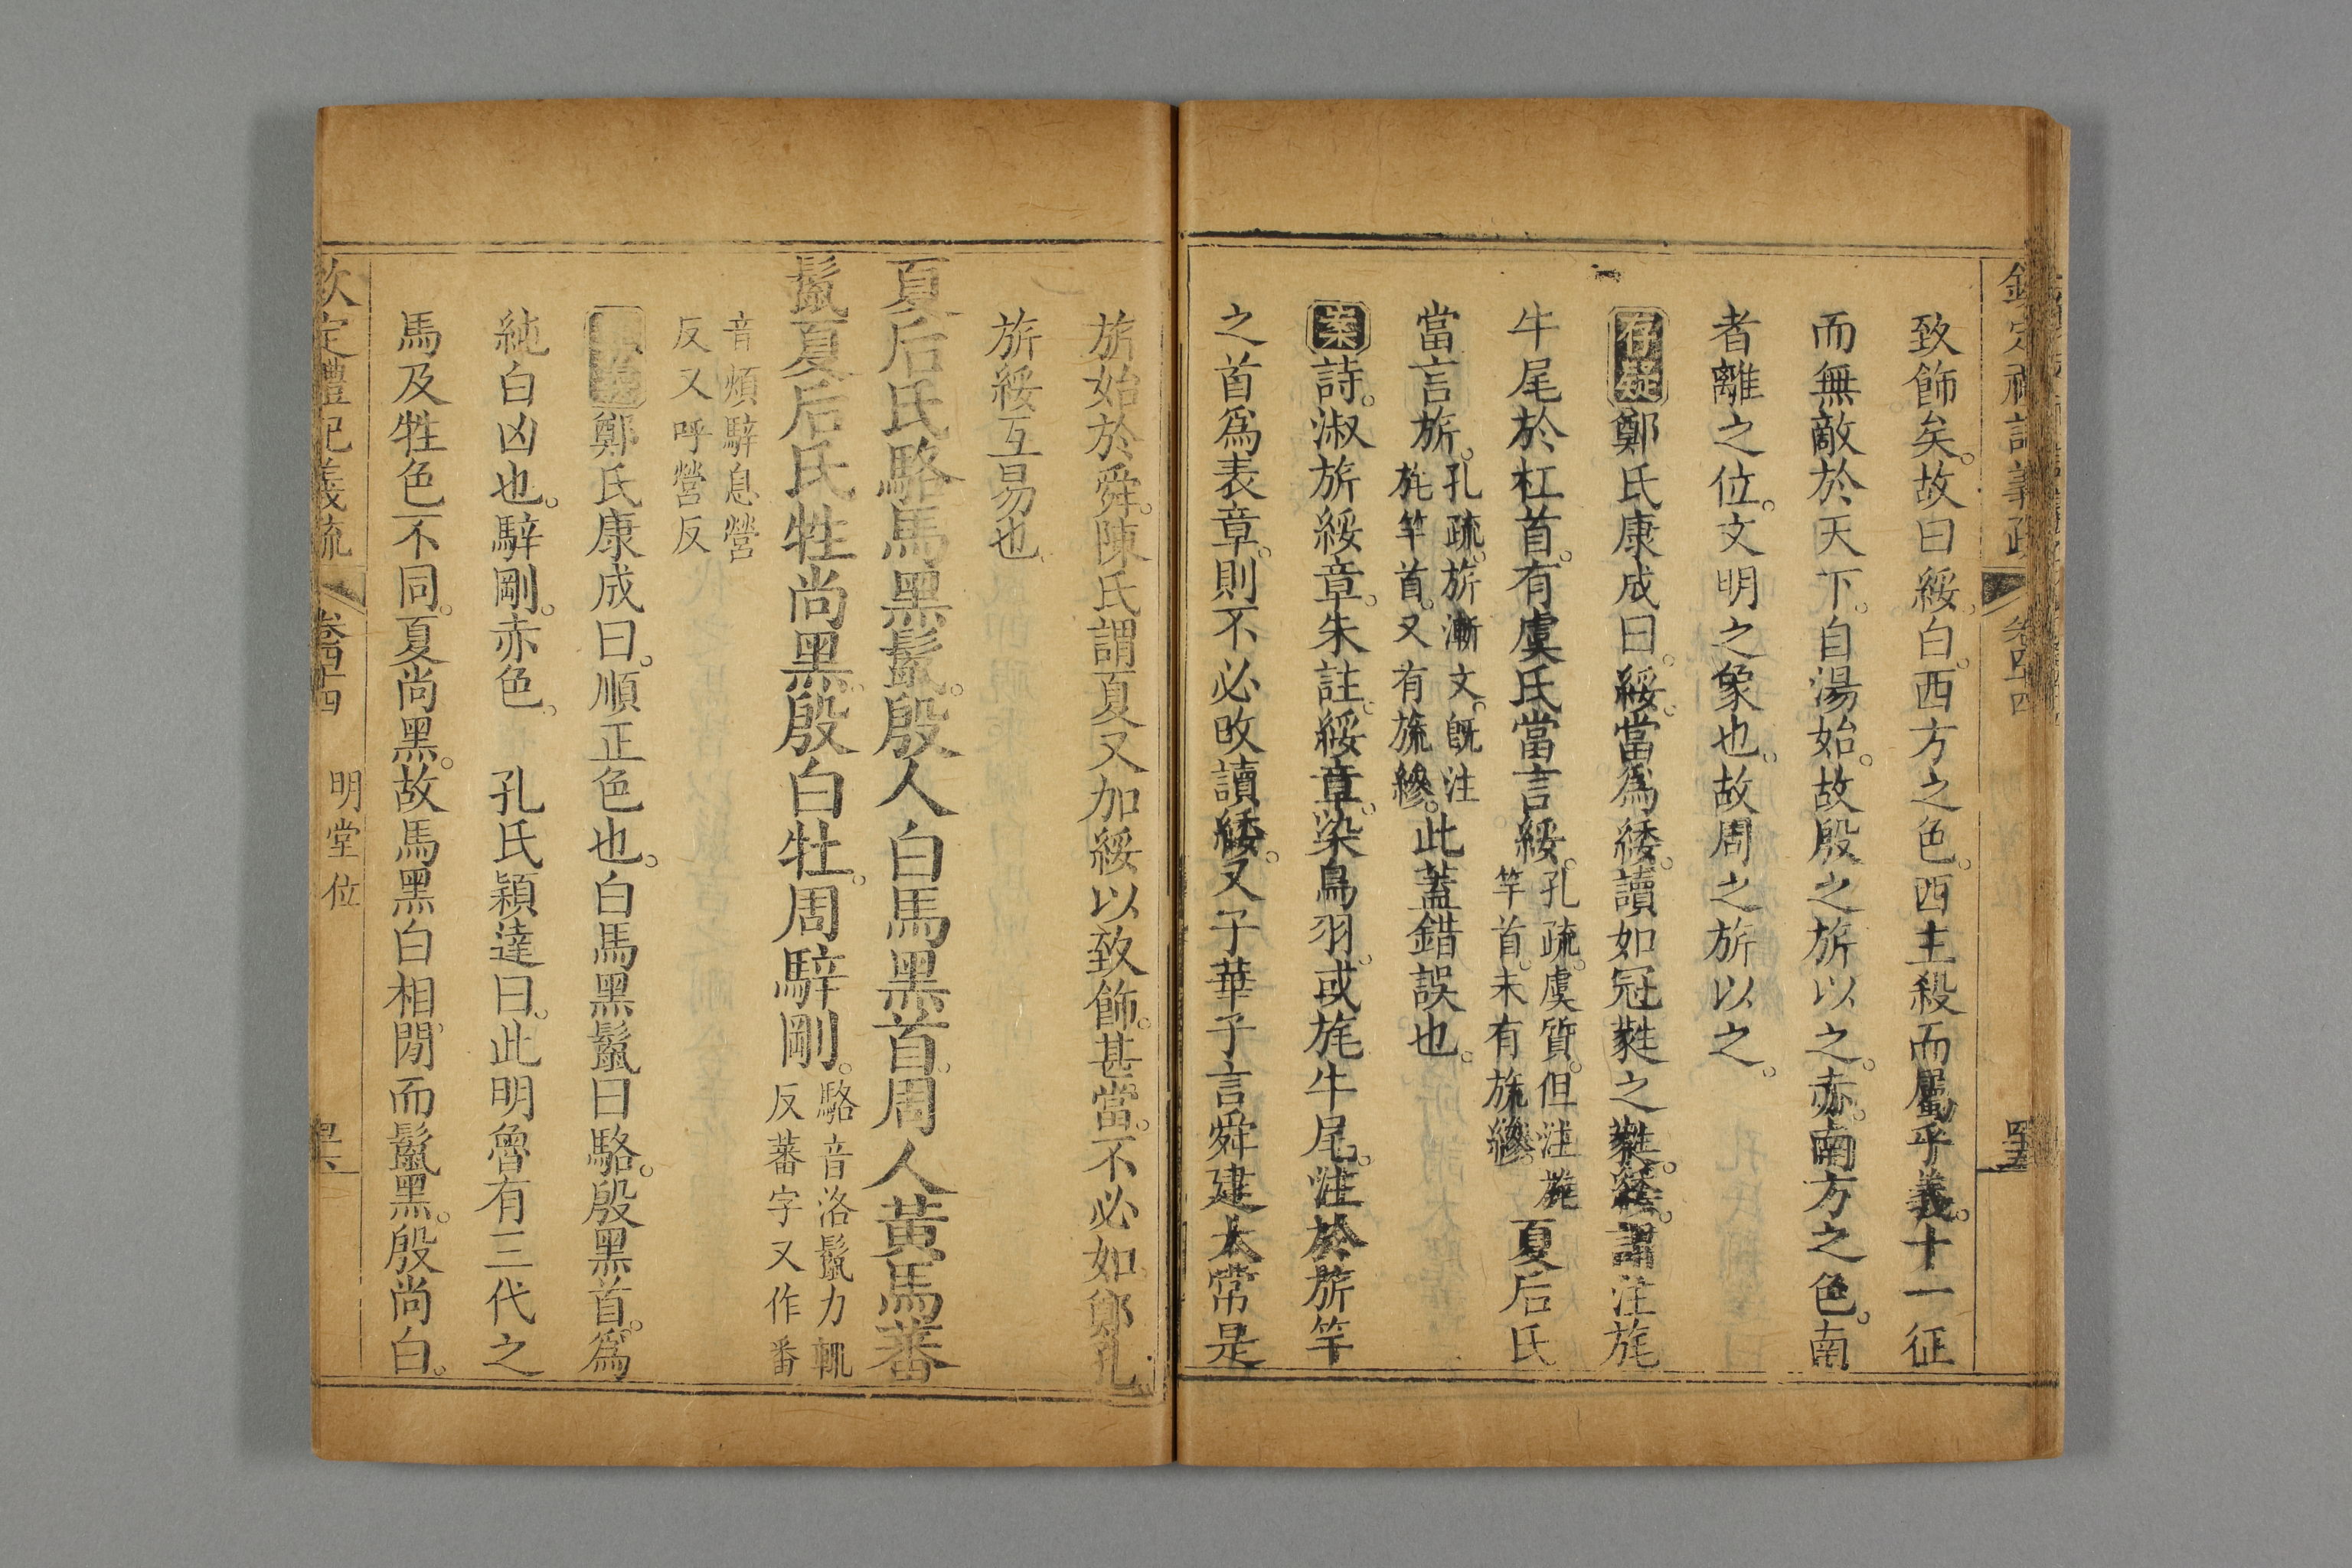 致飾矣故曰綏白西方之色西主殺而屬乎義十一征
而無敵於天下自湯始故殷之旂以之赤南方之色南
者離之位文明之象也故周之旂以之
存疑鄭氏康成曰綏當爲緌讀如冠蕤之蕤緌謂注旄
牛尾於杠首有虞氏當言綏孔疏虞質但注旄竿首未有旒縿夏后氏
當言旂孔疏旂漸文旣注旄竿首又有旒縿此蓋錯誤也
案詩淑旂綏章朱註綏章染鳥羽或旄牛尾注於旂竿
之首爲表章則不必改讀緌又子華子言舜建太常是
旂始於舜陳氏謂夏又加綏以致飾甚當不必如鄭孔
旂綏互易也
夏后氏駱馬黑鬣殷人白馬黑首周人黃馬蕃
鬣夏后氏牲尚黑殷白牡周騂剛駱音洛鬣力輒反蕃字又作番
音煩騂息營反又呼營反
鄭氏康成曰順正色也白馬黑鬣曰駱殷黑首爲
純白凶也騂剛赤色 孔氏穎達曰此明魯有三代之
馬及牲色不同夏尚黑故馬黑白相閒而鬣黑殷尚白
欽定禮記義疏 卷四十四 明堂位